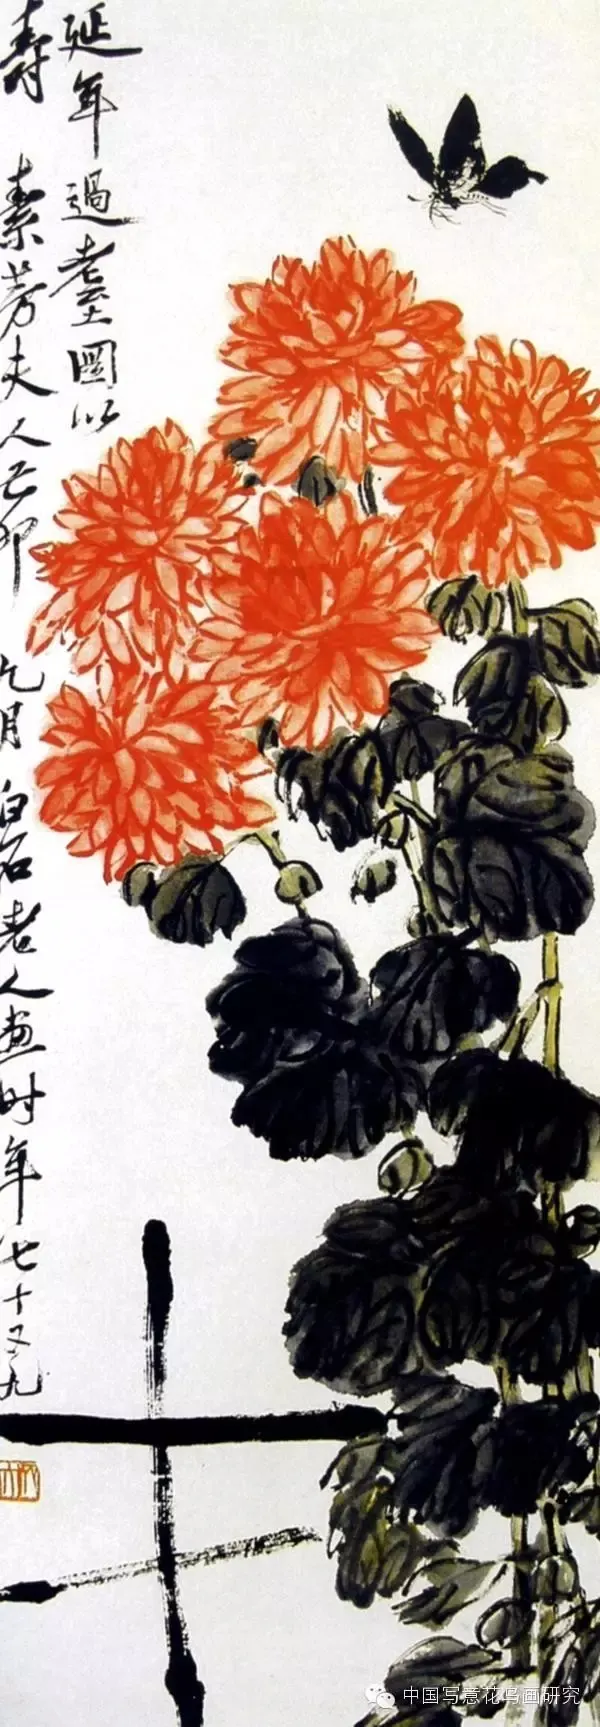 延年過耋圖以
壽 素芳夫人 己卯 九月 白石老人畫時年七十又九
中国写意花鸟画研究